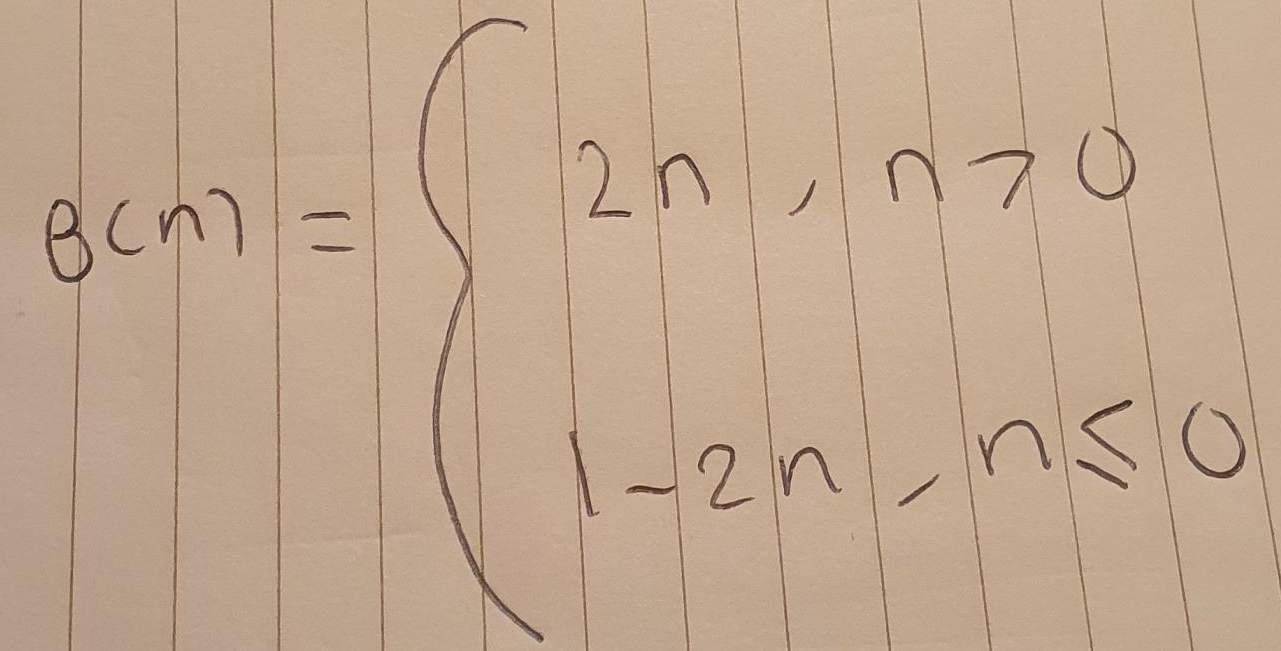 g(n) = {
2n, n > 0
1 - 2n, n ≤ 0